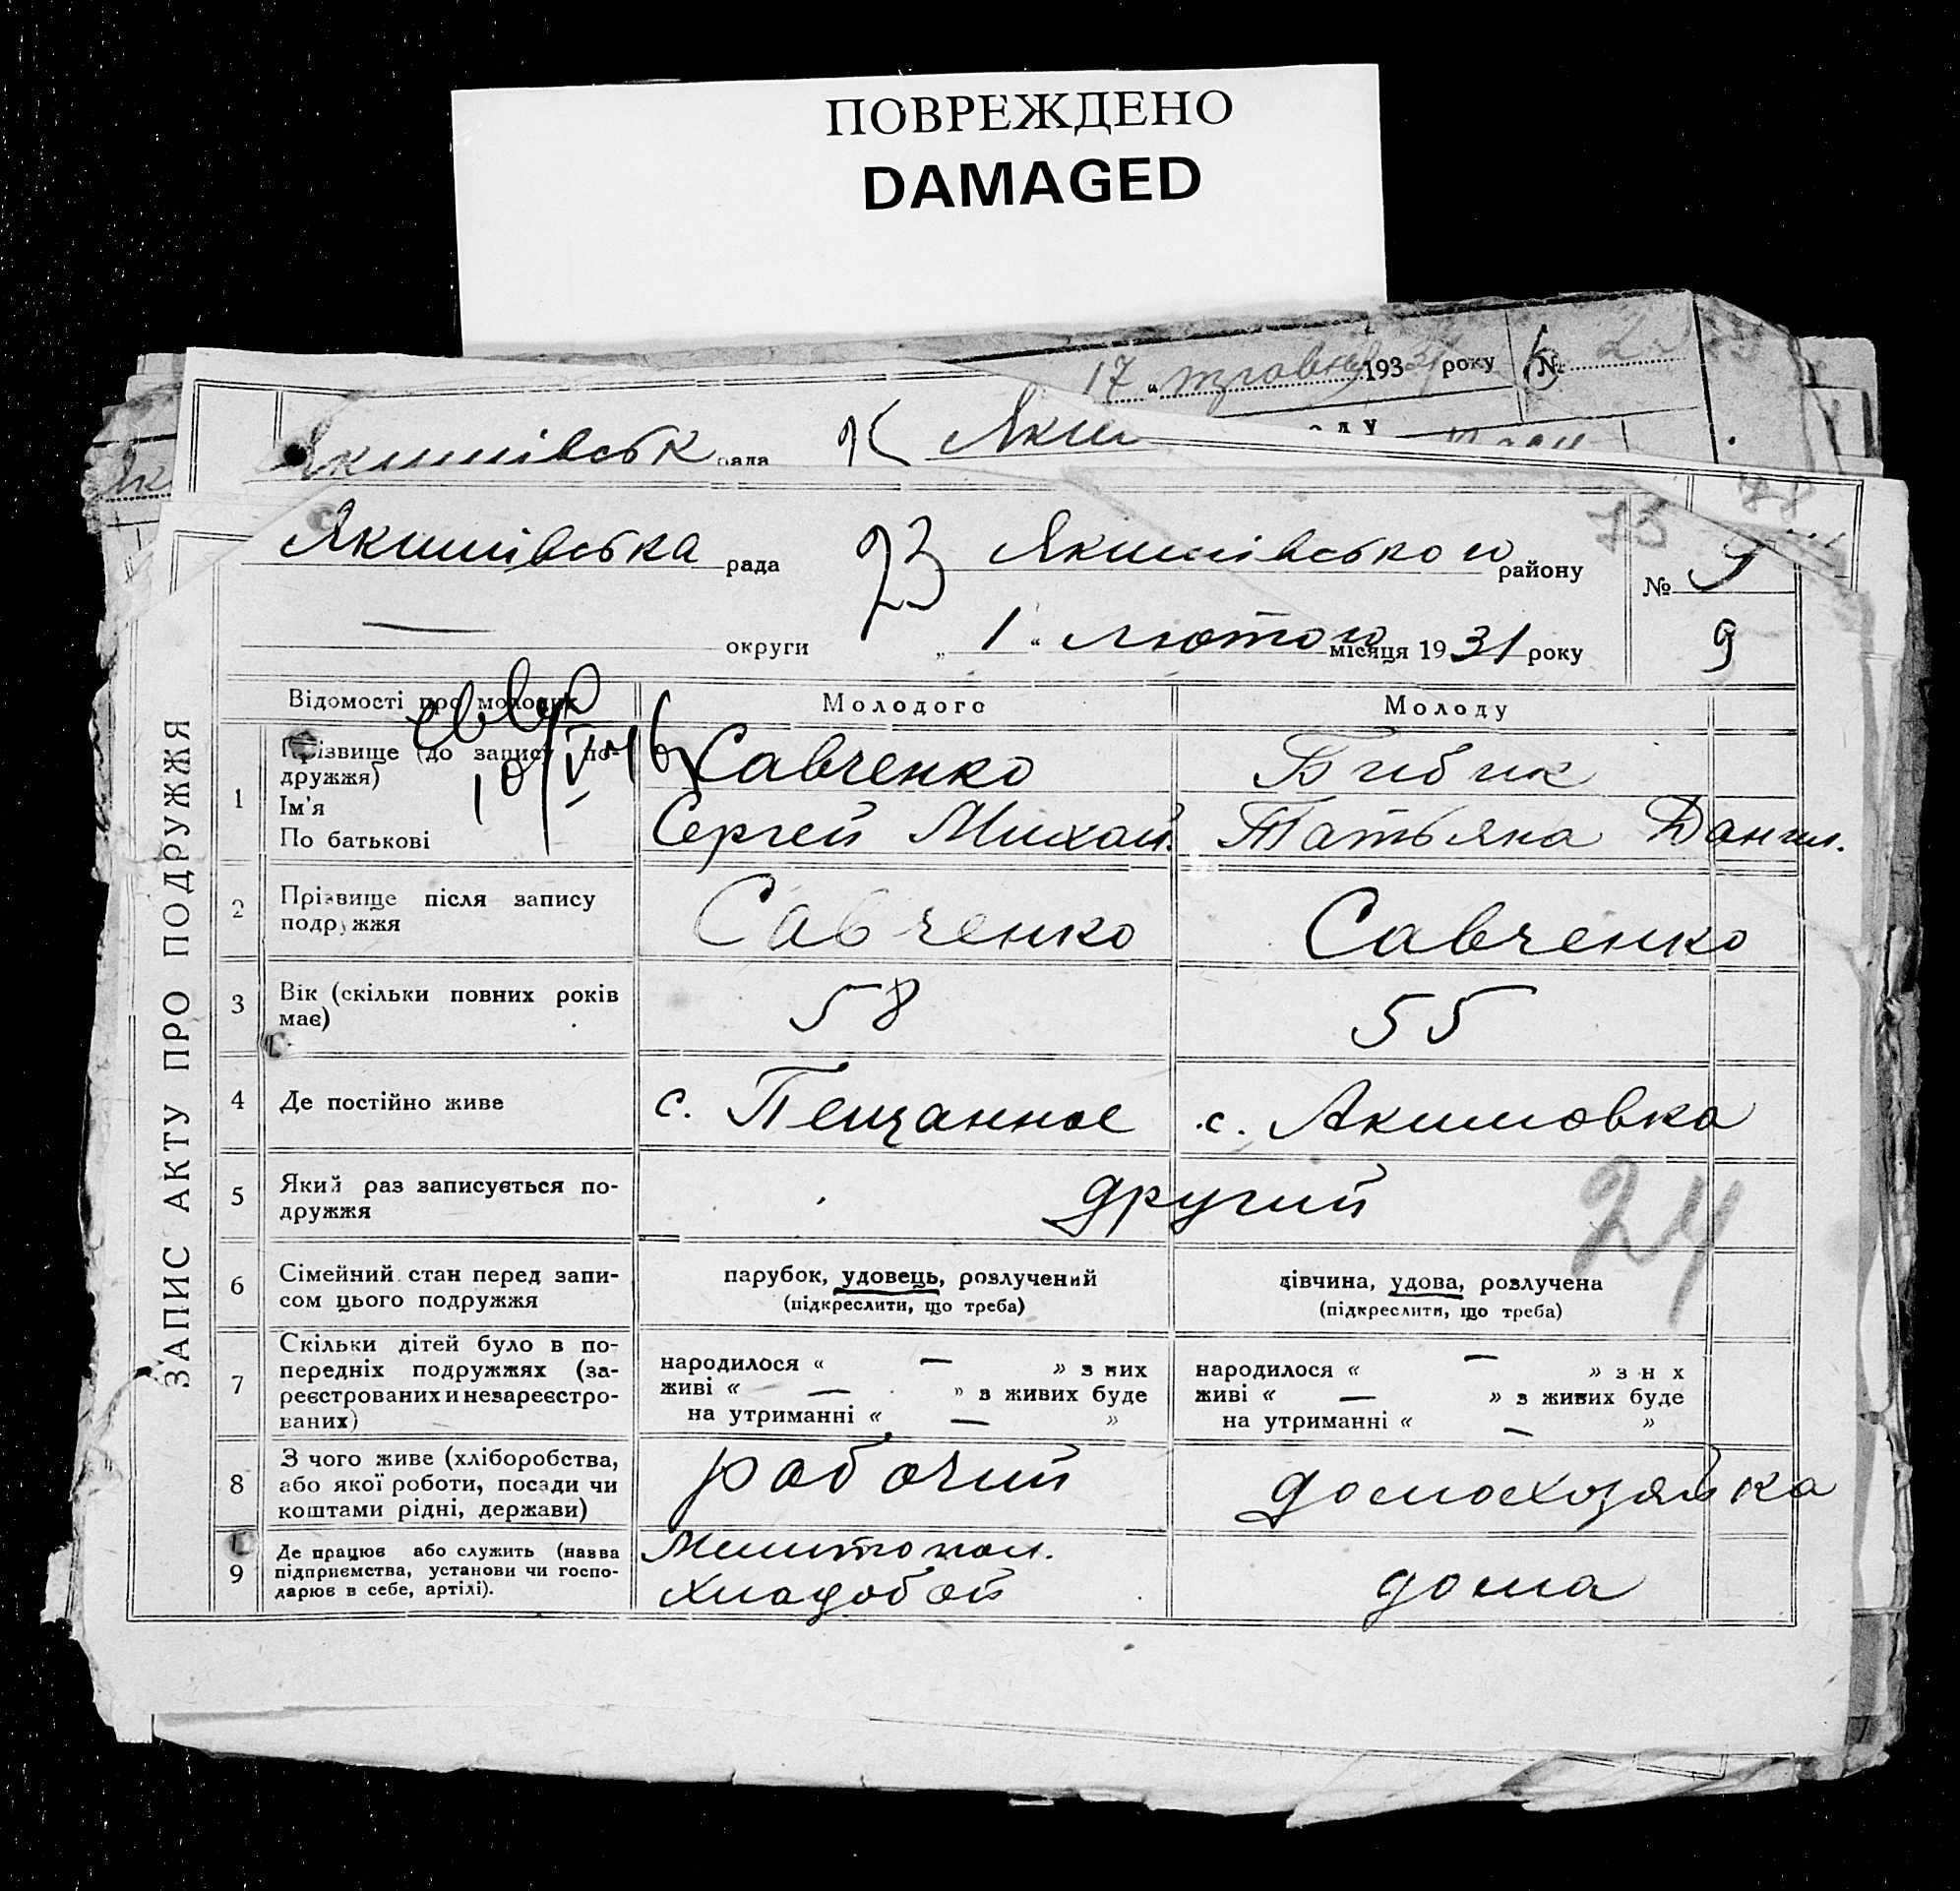 ПОВРЕЖДЕНО
DAMAGED
17 " травня 193 року №
Якимівськ рада Яким
Якимівська рада 23 Якимівського району № 9
округи „ 1 " лютого місяця 1931 року 9
ЗАПИС АКТУ ПРО ПОДРУЖЖЯ
Відомості про молодих Молодого Молоду
1 Прізвище (до запису по-
дружжя)
Ім'я
По батькові
Савченко Бибик
Сергей Михай. Татьяна Данил.
2 Прізвище після запису
подружжя
Савченко Савченко
3 Вік (скільки повних років
має)
58 55
4 Де постійно живе с. Пещанное с. Акимовка
5 Який раз записується по-
дружжя
другий
24
6 Сімейний стан перед запи-
сом цього подружжя
парубок, удовець, розлучений
(підкреслити, що треба)
дівчина, удова, розлучена
(підкреслити, що треба)
7 Скільки дітей було в по-
передніх подружжях (за-
реєстрованих и незареєстро-
ваних)
народилося « — » з них
живі « — » з живих буде
на утриманні « — »
народилося « — » з н х
живі « — » з живих буде
на утриманні « — »
8 З чого живе (хліборобства,
або якої роботи, посади чи
коштами рідні, держави)
рабочий домохозяйка
9 Де працює або служить (назва
підприємства, установи чи госпо-
дарює в себе, артілі).
Мелитопол.
Хладобой
дома